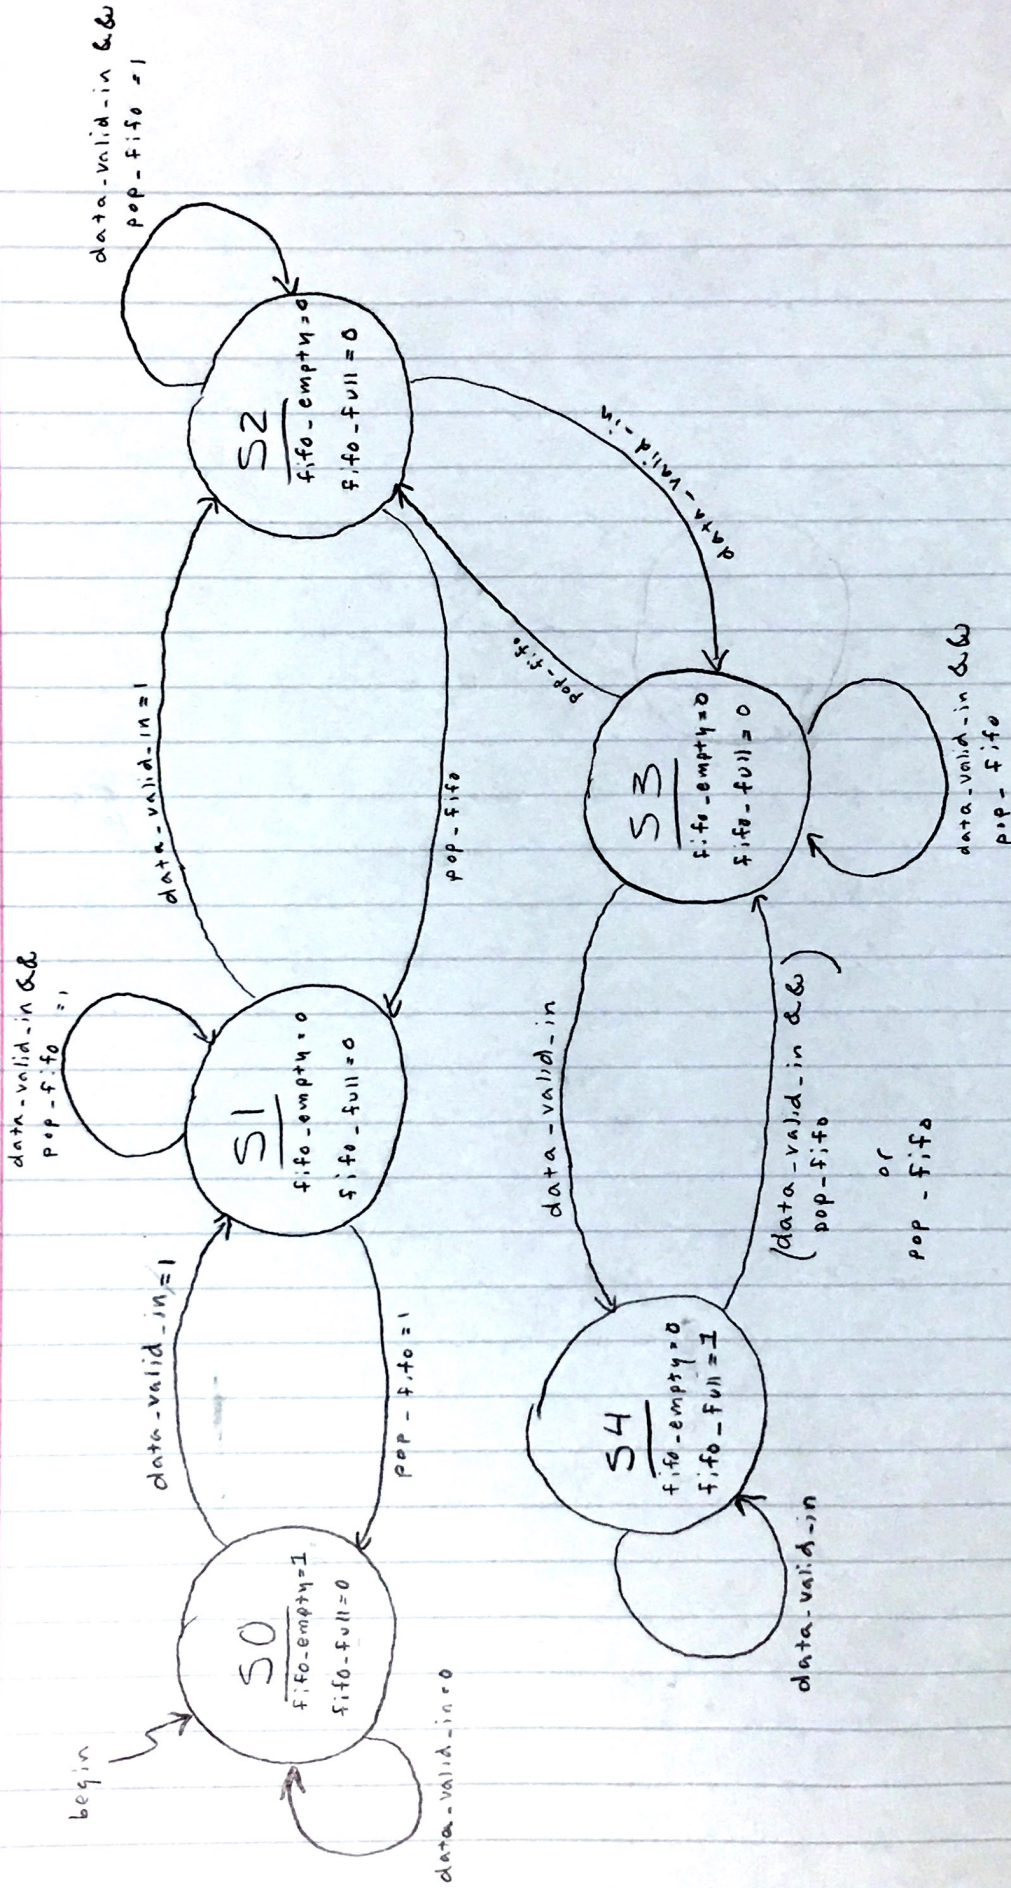 begin
S0
fifo_empty=1
fifo_full=0
data_valid_in=0
data_valid_in=1
pop_fifo=1
S1
fifo_empty=0
fifo_full=0
data_valid_in &&
pop_fifo =1
data_valid_in=1
pop_fifo
S2
fifo_empty=0
fifo_full=0
data_valid_in &&
pop_fifo =1
data_valid_in
pop_fifo
S3
fifo_empty=0
fifo_full=0
data_valid_in &&
pop_fifo
data_valid_in
(data_valid_in &&
pop_fifo)
or
pop_fifo
S4
fifo_empty=0
fifo_full=1
data_valid_in